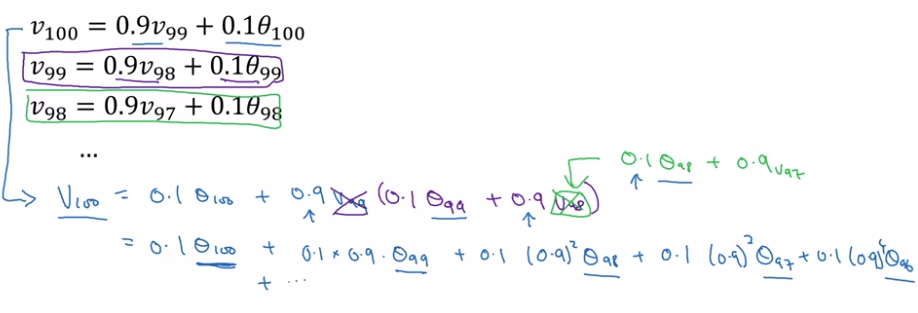 v₁₀₀ = 0.9v₉₉ + 0.1θ₁₀₀
v₉₉ = 0.9v₉₈ + 0.1θ₉₉
v₉₈ = 0.9v₉₇ + 0.1θ₉₈
...
0.1 θ₉₈ + 0.9 v₉₇
V₁₀₀ = 0.1 θ₁₀₀ + 0.9 v₉₉ (0.1 θ₉₉ + 0.9 v₉₈)
= 0.1 θ₁₀₀ + 0.1 × 0.9 · θ₉₉ + 0.1 (0.9)² θ₉₈ + 0.1 (0.9)² θ₉₇ + 0.1 (0.9)⁴ θ₉₆
+ ...